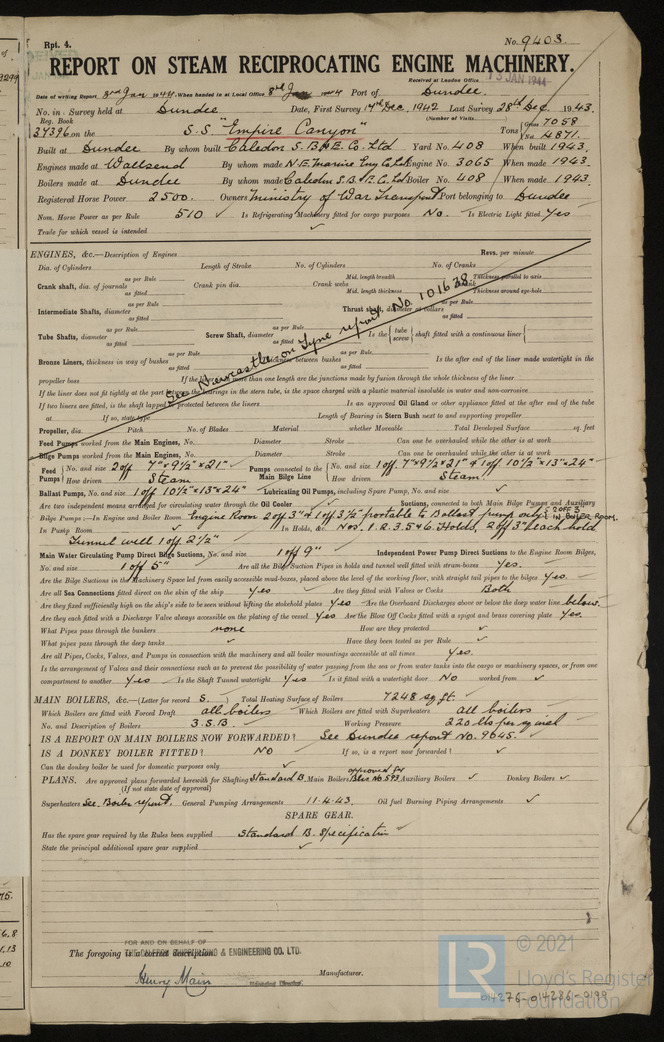 Rpt. 4.
No. 9403.
REPORT ON STEAM RECIPROCATING ENGINE MACHINERY.
Received at London Office 13 JAN 1944
Date of writing Report 3rd Jan 1944. When handed in at Local Office 8th Jan 1944 Port of Dundee.
No. in Survey held at Dundee Date, First Survey 17th Dec. 1942 Last Survey 28th Dec. 1943.
Reg. Book (Number of Visits)
37396 on the S.S. "Empire Canyon" Tons Gross 7058 Net 4871.
Built at Dundee By whom built Caledon S.B. & E. Co. Ltd Yard No. 408 When built 1943.
Engines made at Wallsend By whom made N.E. Marine Eng Co. Ltd Engine No. 3065 When made 1943.
Boilers made at Dundee By whom made Caledon S.B. & E. Co. Ltd Boiler No. 408 When made 1943.
Registered Horse Power 2500. Owners Ministry of War Transport. Port belonging to Dundee
Nom. Horse Power as per Rule 510 ✓ Is Refrigerating Machinery fitted for cargo purposes No. Is Electric Light fitted Yes
Trade for which vessel is intended ✓
ENGINES, &c.—Description of Engines Revs. per minute
Dia. of Cylinders Length of Stroke No. of Cylinders No. of Cranks
Crank shaft, dia. of journals as per Rule as fitted Crank pin dia. Crank webs Mid. length breadth Mid. length thickness Thickness parallel to axis Thickness around eye-hole
Intermediate Shafts, diameter as per Rule as fitted Thrust shaft, diameter at collars as per Rule as fitted
Tube Shafts, diameter as per Rule as fitted Screw Shaft, diameter as per Rule as fitted Is the { tube screw } shaft fitted with a continuous liner {
See Newcastle on Tyne report No. 101638
Bronze Liners, thickness in way of bushes as per Rule as fitted between bushes as per Rule as fitted Is the after end of the liner made watertight in the
propeller boss If the liner is in more than one length are the junctions made by fusion through the whole thickness of the liner
If the liner does not fit tightly at the part between the bearings in the stern tube, is the space charged with a plastic material insoluble in water and non-corrosive
If two liners are fitted, is the shaft lapped or protected between the liners Is an approved Oil Gland or other appliance fitted at the after end of the tube
at If so, state type Length of Bearing in Stern Bush next to and supporting propeller
Propeller, dia. Pitch No. of Blades Material whether Moveable Total Developed Surface sq. feet
Feed Pumps worked from the Main Engines, No. Diameter Stroke Can one be overhauled while the other is at work
Bilge Pumps worked from the Main Engines, No. Diameter Stroke Can one be overhauled while the other is at work
Feed Pumps { No. and size 2 off 7" x 9 1/2 x 21" Pumps connected to the Main Bilge Line { No. and size 1 off 7" x 9 1/2 x 21" & 1 off 10 1/2" x 13" x 24"
How driven Steam How driven Steam
Ballast Pumps, No. and size 1 off 10 1/2" x 13" x 24" Lubricating Oil Pumps, including Spare Pump, No. and size ✓
Are two independent means arranged for circulating water through the Oil Cooler ✓ Suctions, connected to both Main Bilge Pumps and Auxiliary
Bilge Pumps:—In Engine and Boiler Room Engine Room 2 off 3" & 1 off 3 1/2" portable to Ballast pump only. 2 off 3 in Boiler Room.
In Pump Room ✓ In Holds, &c. Nos. 1. 2. 3. 5 & 6 Holds, 2 off 3" each hold
Tunnel well 1 off 2 1/2"
Main Water Circulating Pump Direct Bilge Suctions, No. and size 1 off 9" Independent Power Pump Direct Suctions to the Engine Room Bilges,
No. and size 1 off 5" Are all the Bilge Suction Pipes in holds and tunnel well fitted with strum-boxes Yes.
Are the Bilge Suctions in the Machinery Space led from easily accessible mud-boxes, placed above the level of the working floor, with straight tail pipes to the bilges Yes.
Are all Sea Connections fitted direct on the skin of the ship Yes Are they fitted with Valves or Cocks Both
Are they fixed sufficiently high on the ship's side to be seen without lifting the stokehold plates Yes Are the Overboard Discharges above or below the deep water line below.
Are they each fitted with a Discharge Valve always accessible on the plating of the vessel Yes Are the Blow Off Cocks fitted with a spigot and brass covering plate Yes.
What Pipes pass through the bunkers none How are they protected ✓
What pipes pass through the deep tanks ✓ Have they been tested as per Rule ✓
Are all Pipes, Cocks, Valves, and Pumps in connection with the machinery and all boiler mountings accessible at all times Yes.
Is the arrangement of Valves and their connections such as to prevent the possibility of water passing from the sea or from water tanks into the cargo or machinery spaces, or from one
compartment to another Yes Is the Shaft Tunnel watertight Yes Is it fitted with a watertight door No worked from ✓
MAIN BOILERS, &c.—(Letter for record S. ) Total Heating Surface of Boilers 7248 sq ft.
Which Boilers are fitted with Forced Draft all boilers Which Boilers are fitted with Superheaters all boilers
No. and Description of Boilers 3. S.B. Working Pressure 220 lbs per sq inch
IS A REPORT ON MAIN BOILERS NOW FORWARDED? See Dundee report No. 9645.
IS A DONKEY BOILER FITTED? No If so, is a report now forwarded? ✓
Can the donkey boiler be used for domestic purposes only ✓
PLANS. Are approved plans forwarded herewith for Shafting Standard B. Main Boilers approved for Blr No 593 Auxiliary Boilers ✓ Donkey Boilers ✓
(If not state date of approval)
Superheaters See Boiler report. General Pumping Arrangements 11.4.43. Oil fuel Burning Piping Arrangements ✓
SPARE GEAR.
Has the spare gear required by the Rules been supplied Standard B. Specification
State the principal additional spare gear supplied ✓
FOR AND ON BEHALF OF
THE CALEDON SHIPBUILDING & ENGINEERING CO. LTD.
The foregoing is a correct description.
Henry Main Manufacturer.
LR © 2021
Lloyd's Register
Foundation
014276-014286-0199